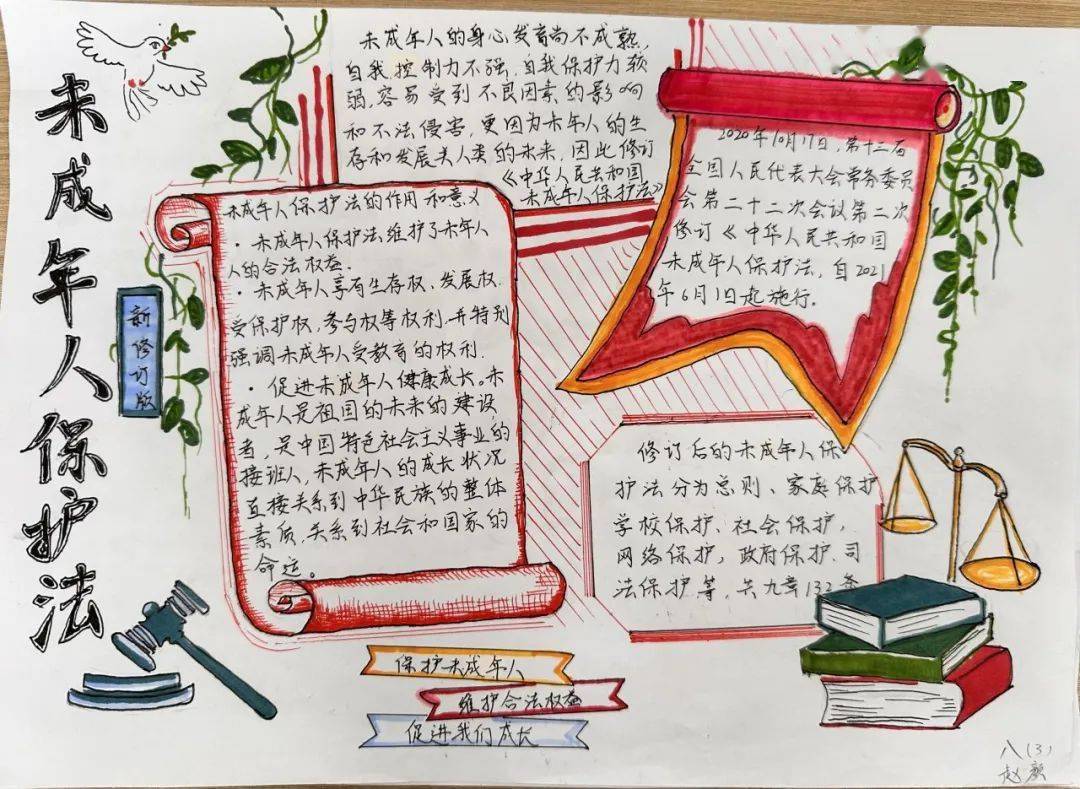 未成年人保护法
新修订版
未成年人的身心发育尚不成熟,
自我控制力不强,自我保护力较
弱,容易受到不良因素的影响
和不法侵害,更因为未年人的生
存和发展关人类的未来,因此修订
《中华人民共和国
未成年人保护法》
未成年人保护法的作用和意义
·未成年人保护法,维护了未年人
人的合法权益.
·未成年人享有生存权、发展权.
受保护权,参与权等权利.并特别
强调未成年人受教育的权利.
·促进未成年人健康成长。未
成年人是祖国的未来的建设
者,是中国特色社会主义事业的
接班人,未成年人的成长状况
直接关系到中华民族的整体
素质,关系到社会和国家的
命运。
2020年10月17日,第十三届
全国人民代表大会常务委员
会第二十二次会议第二次
修订《中华人民共和国
未成年人保护法,自2021
年6月1日起施行。
修订后的未成年人保
护法分为总则、家庭保护
学校保护、社会保护,
网络保护,政府保护.司
法保护等,共九章132条
保护未成年人
维护合法权益
促进我们成长
八(3)
赵颜